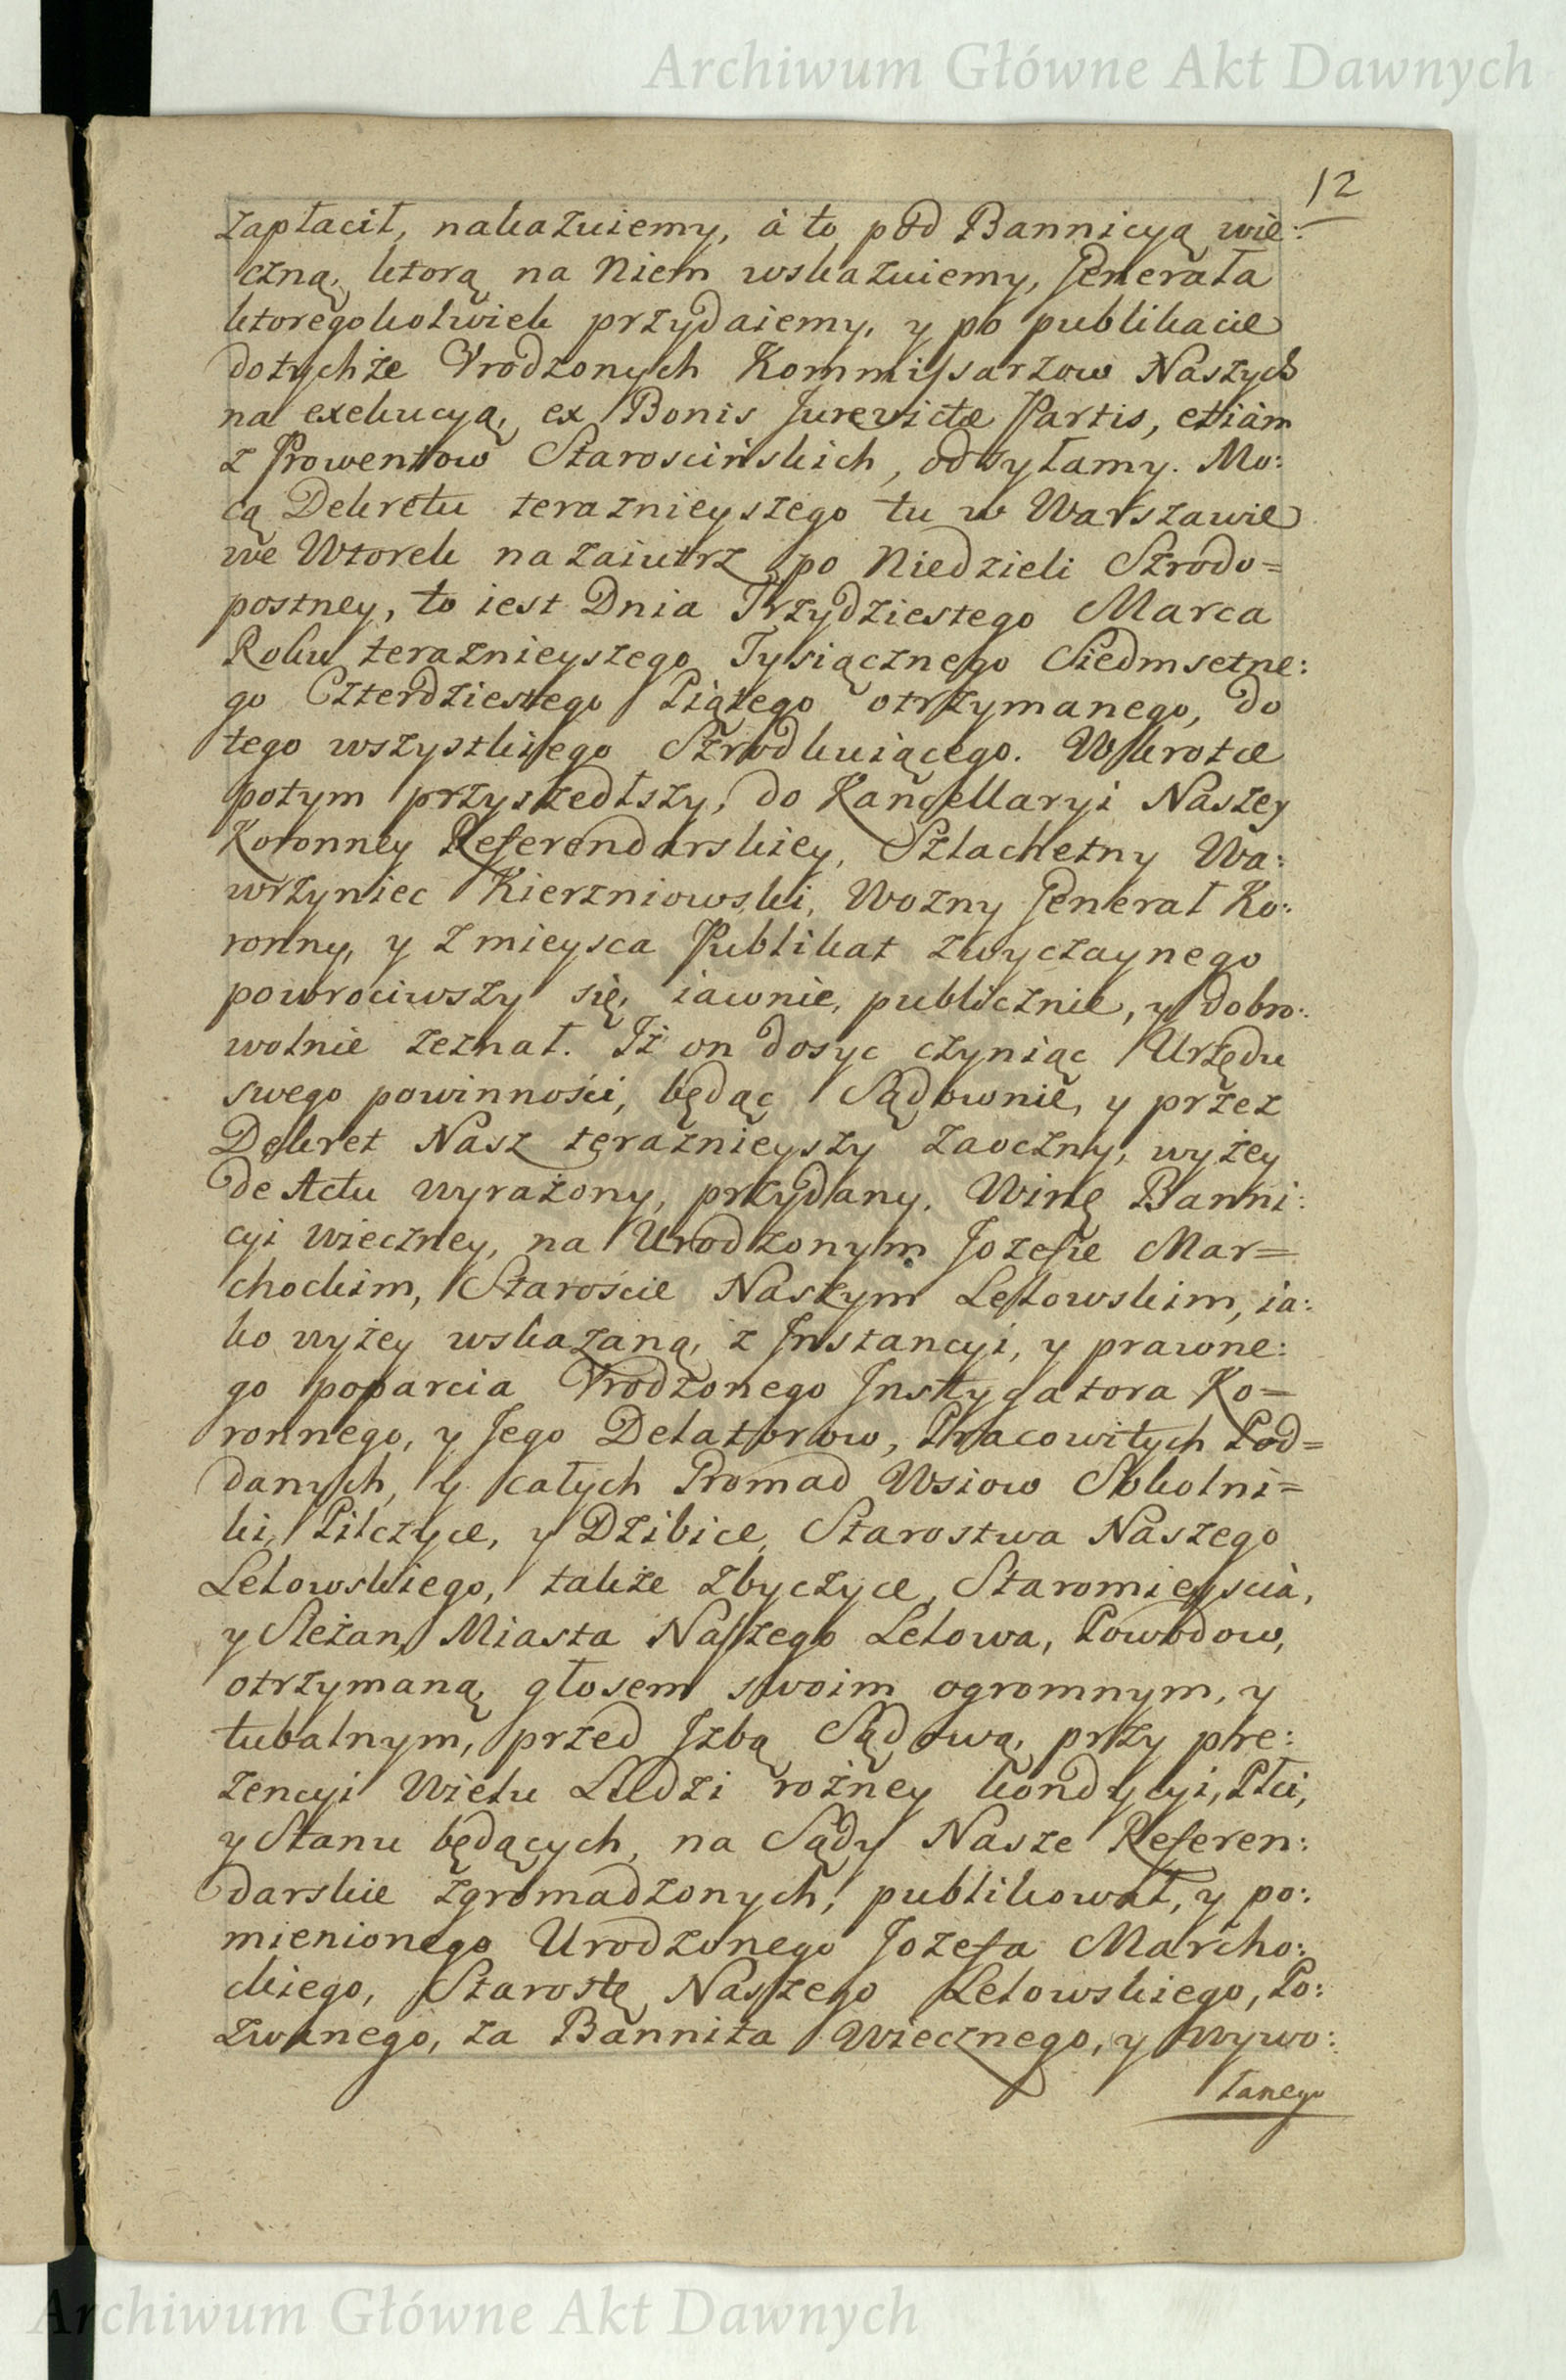 Archiwum Główne Akt Dawnych
12
zapłacił, nakazuiemy, à to pod Bannicyą wie:
czną, ktorą na Niem wskazuiemy, Jenerała
ktoregokolwiek przydaiemy, y po publikacie
dotychże Vrodzonych Kommissarzow Naszych
na exekucyą, ex Bonis Jurevictæ Partis, etiàm
z Prowentow Starościńskich, odsyłamy. Mo:
cą Dekretu teraznieyszego tu w Warszawie
we Wtorek nazaiutrz po Niedzieli Szrodo=
postney, to iest Dnia Trzydziestego Marca
Roku teraznieyszego Tysiącznego Siedmsetne:
go Czterdziestego Piątego otrzymanego, do
tego wszystkiego Szrodkuiącego. Wkrotce
potym przyszedłszy, do Kancellaryi Naszey
Koronney Referendarskiey, Szlachetny Wa:
wrzyniec Kierzniowski, Wozny Jenerał Ko:
ronny, y z mieysca Publikat zwyczaynego
powrociwszy się, iawnie, publicznie, y dobro:
wolnie zeznał. Iż on dosyc czyniąc Urzędu
swego powinności, będąc Sądownie, y przez
Dekret Nasz teraznieyszy zaoczny, wyżey
de Actu wyrażony, przydany. Winę Banni:
cyi wieczney, na Urodzonym Jozefie Mar=
chockim, Starościе Naszym Lelowskim, ia:
ko wyżey wskazaną, z Instancyi, y prawne:
go poparcia Vrodzonego Instygatora Ko=
ronnego, y Jego Delatorow, Pracowitych Pod=
danych, y całych Gromad Wsiow Sokolni=
ki, Pilczyce, y Dzibice, Starostwa Naszego
Lelowskiego, także Zbyczyce, Staromieyscià,
y Sleżan, Miasta Naszego Lelowa, Powodow,
otrzymaną, głosem swoim ogromnym, y
tubalnym, przed Jzbą Sądową, przy pre:
zencyi Wielu Ludzi rożney kondycyi, Płci,
y Stanu będących, na Sądy Nasze Referen:
darskie zgromadzonych, publikował, y po:
mienionego Urodzonego Jozefa Marcho:
ckiego, Starostę Naszego Lelowskiego, Po:
zwanego, za Bannita Wiecznego, y wywo:
łanego
Archiwum Główne Akt Dawnych